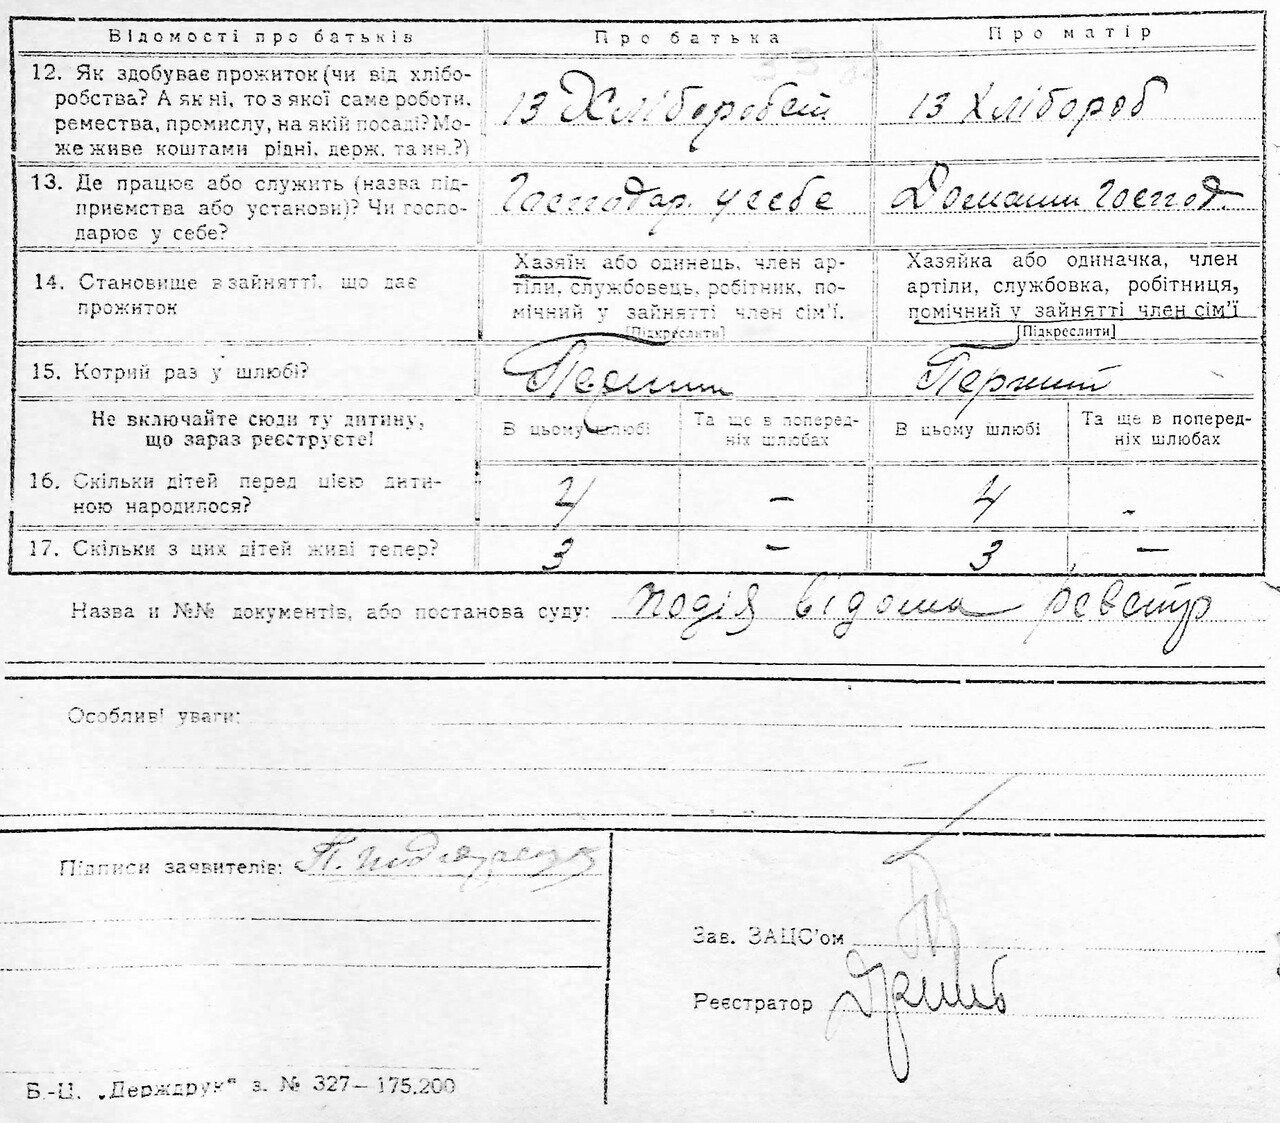 Відомості про батьків Про батька Про матір
12. Як здобуває прожиток (чи від хлібо-
робства? А як ні, то з якої саме роботи,
ремества, промислу, на якій посаді? Мо-
же живе коштами рідні, держ. та ин.?)
13 Хлібороб 13 Хлібороб
13. Де працює або служить (назва під-
приємства або установи)? Чи госпо-
дарює у себе?
Господар. у себе Домашн господ.
14. Становище в зайнятті, що дає
прожиток
Хазяїн або одинець, член ар-
тіли, службовець, робітник, по-
мічний у зайнятті член сім'ї.
[Підкреслити]
Хазяйка або одиначка, член
артіли, службовка, робітниця,
помічний у зайнятті член сім'ї
[Підкреслити]
15. Котрий раз у шлюбі? Перший Перший
Не включайте сюди ту дитину,
що зараз реєструєте!
В цьому шлюбі
Та ще в поперед-
ніх шлюбах
В цьому шлюбі
Та ще в поперед-
ніх шлюбах
16. Скільки дітей перед цією дити-
ною народилося?
4 – 4 -
17. Скільки з цих дітей живі тепер? 3 – 3 –
Назва и №№ документів, або постанова суду: подія відома реєстр
Особливі уваги:
Підписи заявителів: П.
Зав. ЗАЦС'ом
Реєстратор
Б.-Ц. „Держдрук" з. № 327—175.200